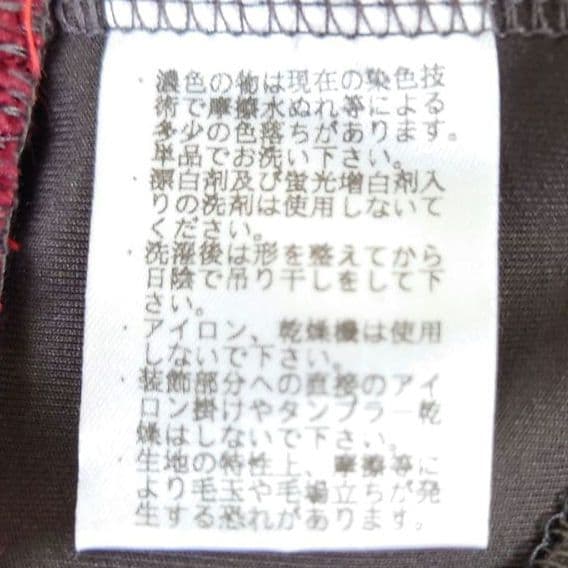 ・濃色の物は現在の染色技
術で摩擦水ぬれ等による
多少の色落ちがあります。
単品でお洗い下さい。
・漂白剤及び蛍光増白剤入
りの洗剤は使用しないで
ください。
・洗濯後は形を整えてから
日陰で吊り干しをして下
さい。
・アイロン、乾燥機は使用
しないで下さい。
・装飾部分への直接のアイ
ロン掛けやタンブラー乾
燥はしないで下さい。
・生地の特性上、摩擦等に
より毛玉や毛場立ちが発
生する恐れがあります。